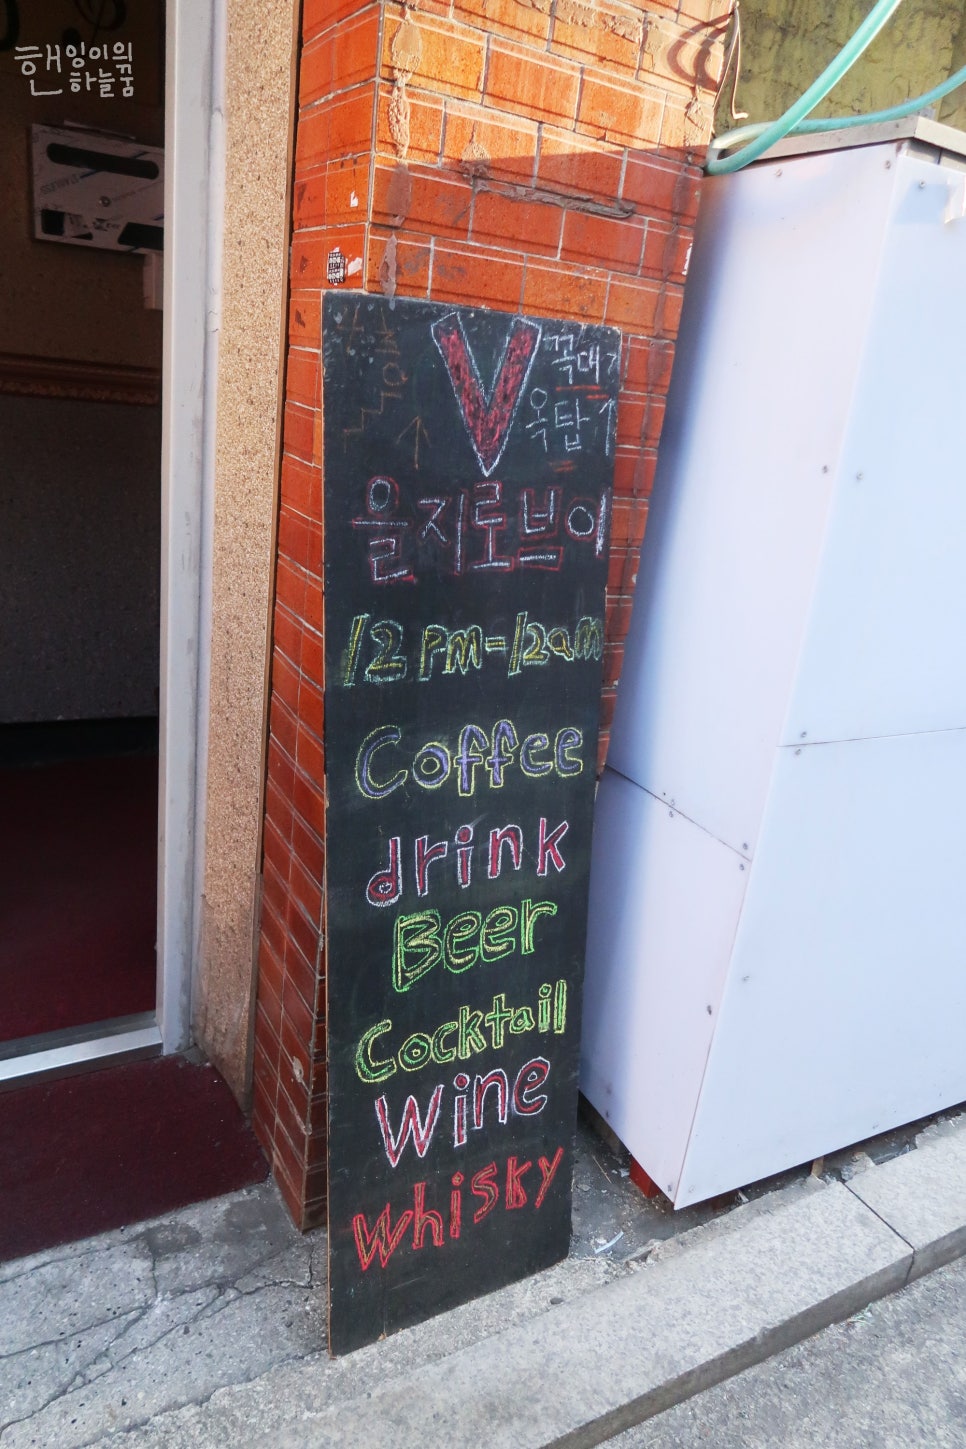 햰잉이의
하늘꿈
V
꼭대기
옥탑
을지로브이
12pm-12am
Coffee
drink
Beer
Cocktail
Wine
Whisky